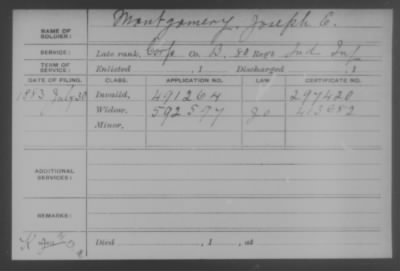 NAME OF SOLDIER: Montgomery, Joseph C.
SERVICE: Late rank, Corp Co. D, 80 Reg't Ind Inf
TERM OF SERVICE: Enlisted , 1 Discharged , 1
DATE OF FILING. CLASS. APPLICATION NO. LAW. CERTIFICATE NO.
1883 July 30 Invalid, 491264 297420
Widow, 592597 413652
Minor,
ADDITIONAL SERVICES:
REMARKS:
K Died , 1 , at